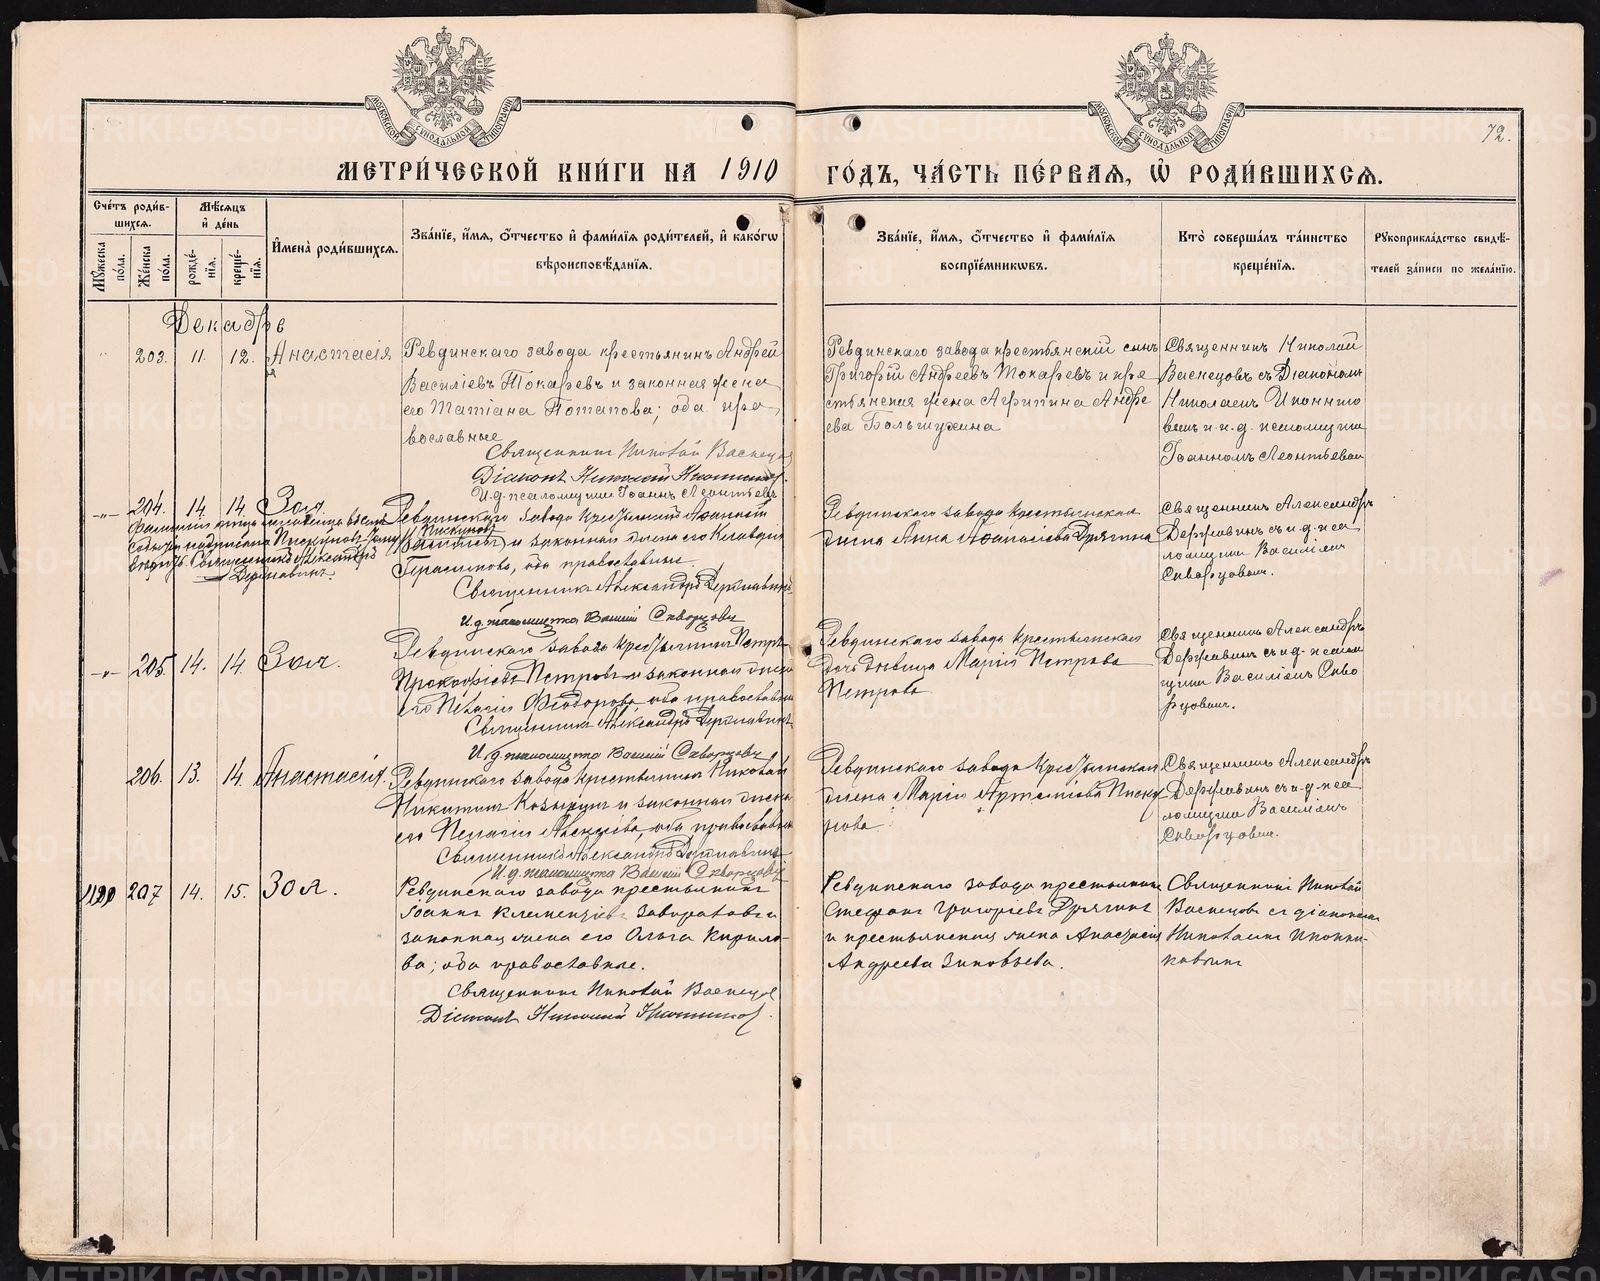 МОСКОВСКОЙ СѴНОДАЛЬНОЙ ТИПОГРАФІИ
МОСКОВСКОЙ СѴНОДАЛЬНОЙ ТИПОГРАФІИ
72.
МЕТРИ́ЧЕСКОЙ КНИ́ГИ НА 1910 ГО́ДЪ, ЧА́СТЬ ПЕ́РВАЯ, Ѡ҆ РОДИ́ВШИХСЯ.
Сче́тъ роди́вшихся.
Мꙋ́жеска по́ла.
Же́нска по́ла.
Мѣ́сяцъ и҆ де́нь
рожде́нїя.
креще́нїя.
И҆мена̀ роди́вшихся.
Зва́нїе, и҆́мя, ѻ҆́тчество и҆ фами́лїя роди́телей, и҆ како́гѡ
вѣроисповѣ́данїя.
Зва́нїе, и҆́мя, ѻ҆́тчество и҆ фами́лїя
воспрїе́мникѡвъ.
Кто̀ соверша́лъ та́инство
креще́нїя.
Рꙋкоприкла́дство свидѣ́-
телей за́писи по жела́нїю.
Декабрь
203. 11. 12. Анастасія
Ревдинскаго завода крестьянинъ Андрей
Василіевъ Токаревъ и законная жена
его Татіана Потапова; оба пра-
вославные
Священникъ Николай Васнецов
Діаконъ Николай Иконников
И.д. псаломщика Іоаннъ Леонтьевъ
Ревдинскаго завода крестьянскій сынъ
Григорій Андреевъ Токаревъ и кре
стьянская жена Агрипина Андре
ева Большухина
Священникъ Николай
Васнецовъ съ Діакономъ
Николаемъ Иконнико
вымъ и и. д. псаломщика
Іоанномъ Леонтьевым
204. 14. 14. Зоя.
Священникъ Александръ
Державинъ.
Ревдинскаго завода крестьянинъ
Пискуновъ
и законная жена его Клавдія
Герасимова, оба православные.
Священникъ Александръ Державинъ
И.д. псаломщика Василій Скворцовъ
Ревдинскаго завода крестьянская
жена Анна Аѳанасіева Дрягина
Священникъ Александръ
Державинъ съ и. д. пса
ломщика Василіемъ
Скворцовым.
205. 14. 14. Зоя.
Ревдинскаго завода крестьянинъ Петръ
Прокофіевъ Петровъ и законная жена
его Пелагія Ѳеодорова, оба православные
Священникъ Александръ Державинъ
И.д. псаломщика Василій Скворцовъ
Ревдинскаго завода крестьянская
дочь девица Марія Петрова
Петрова
Священникъ Александръ
Державинъ съ и. д. псалом
щика Василіемъ Скво
рцовым.
206. 13. 14. Анастасія.
Ревдинскаго завода крестьянинъ Николай
Никитинъ и законная жена
его Пелагія Алексѣева, оба православные
Священникъ Александръ Державинъ
И.д. псаломщика Василій Скворцовъ
Ревдинскаго завода крестьянская
жена Марія Артеміева Писку
нова
Священникъ Александръ
Державинъ съ и. д. пса
ломщика Василіемъ
Скворцовым.
207 14. 15. Зоя.
Ревдинскаго завода крестьянинъ
Іоаннъ Климентіевъ и
законная жена его Ольга Кирило-
ва; оба православные.
Священникъ Николай Васнецов
Діаконъ Николай Иконников.
Ревдинскаго завода крестьянинъ
Стефанъ Григоріевъ Дрягинъ
и крестьянская жена Анастасія
Андреева Зиновьева.
Священникъ Николай
Васнецовъ съ діакономъ
Николаемъ Иконни-
ковымъ
METRIKI.GASO-URAL.RU